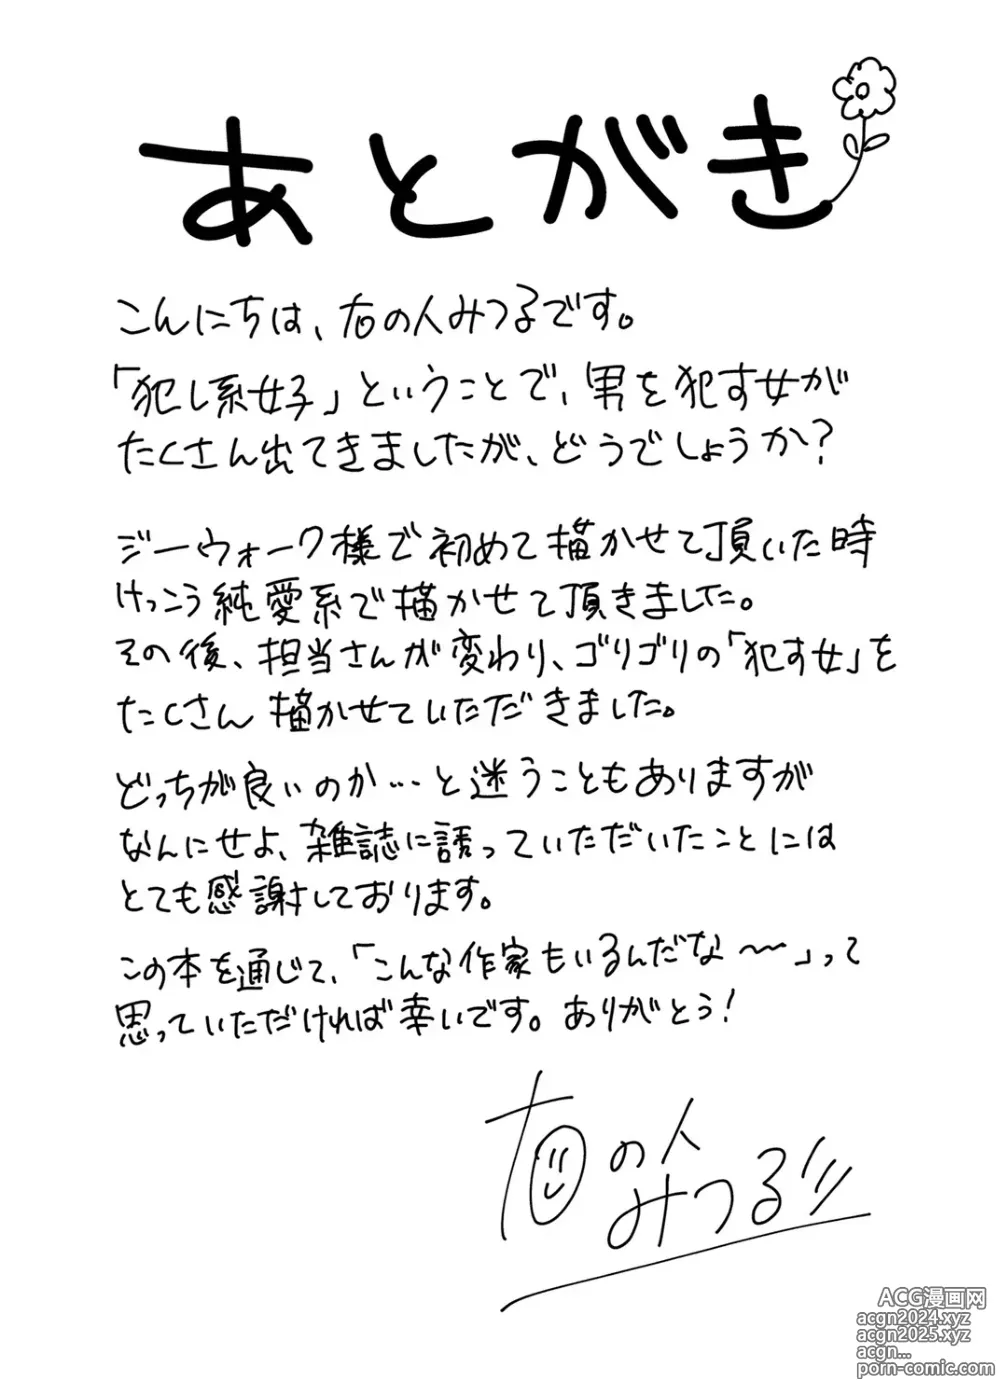 あとがき
こんにちは、右の人みつるです。
「犯し系女子」ということで、男を犯す女が
たくさん出てきましたが、どうでしょうか?
ジーウォーク様で初めて描かせて頂いた時
けっこう純愛系で描かせて頂きました。
その後、担当さんが変わり、ゴリゴリの「犯す女」を
たくさん描かせていただきました。
どっちが良いのか…と迷うこともありますが
なんにせよ、雑誌に誘っていただいたことには
とても感謝しております。
この本を通じて、「こんな作家もいるんだな〜〜」って
思っていただければ幸いです。ありがとう!
右の人
みつる
ACG漫画网
acgn2024.xyz
acgn2025.xyz
acgn...
porn-comic.com